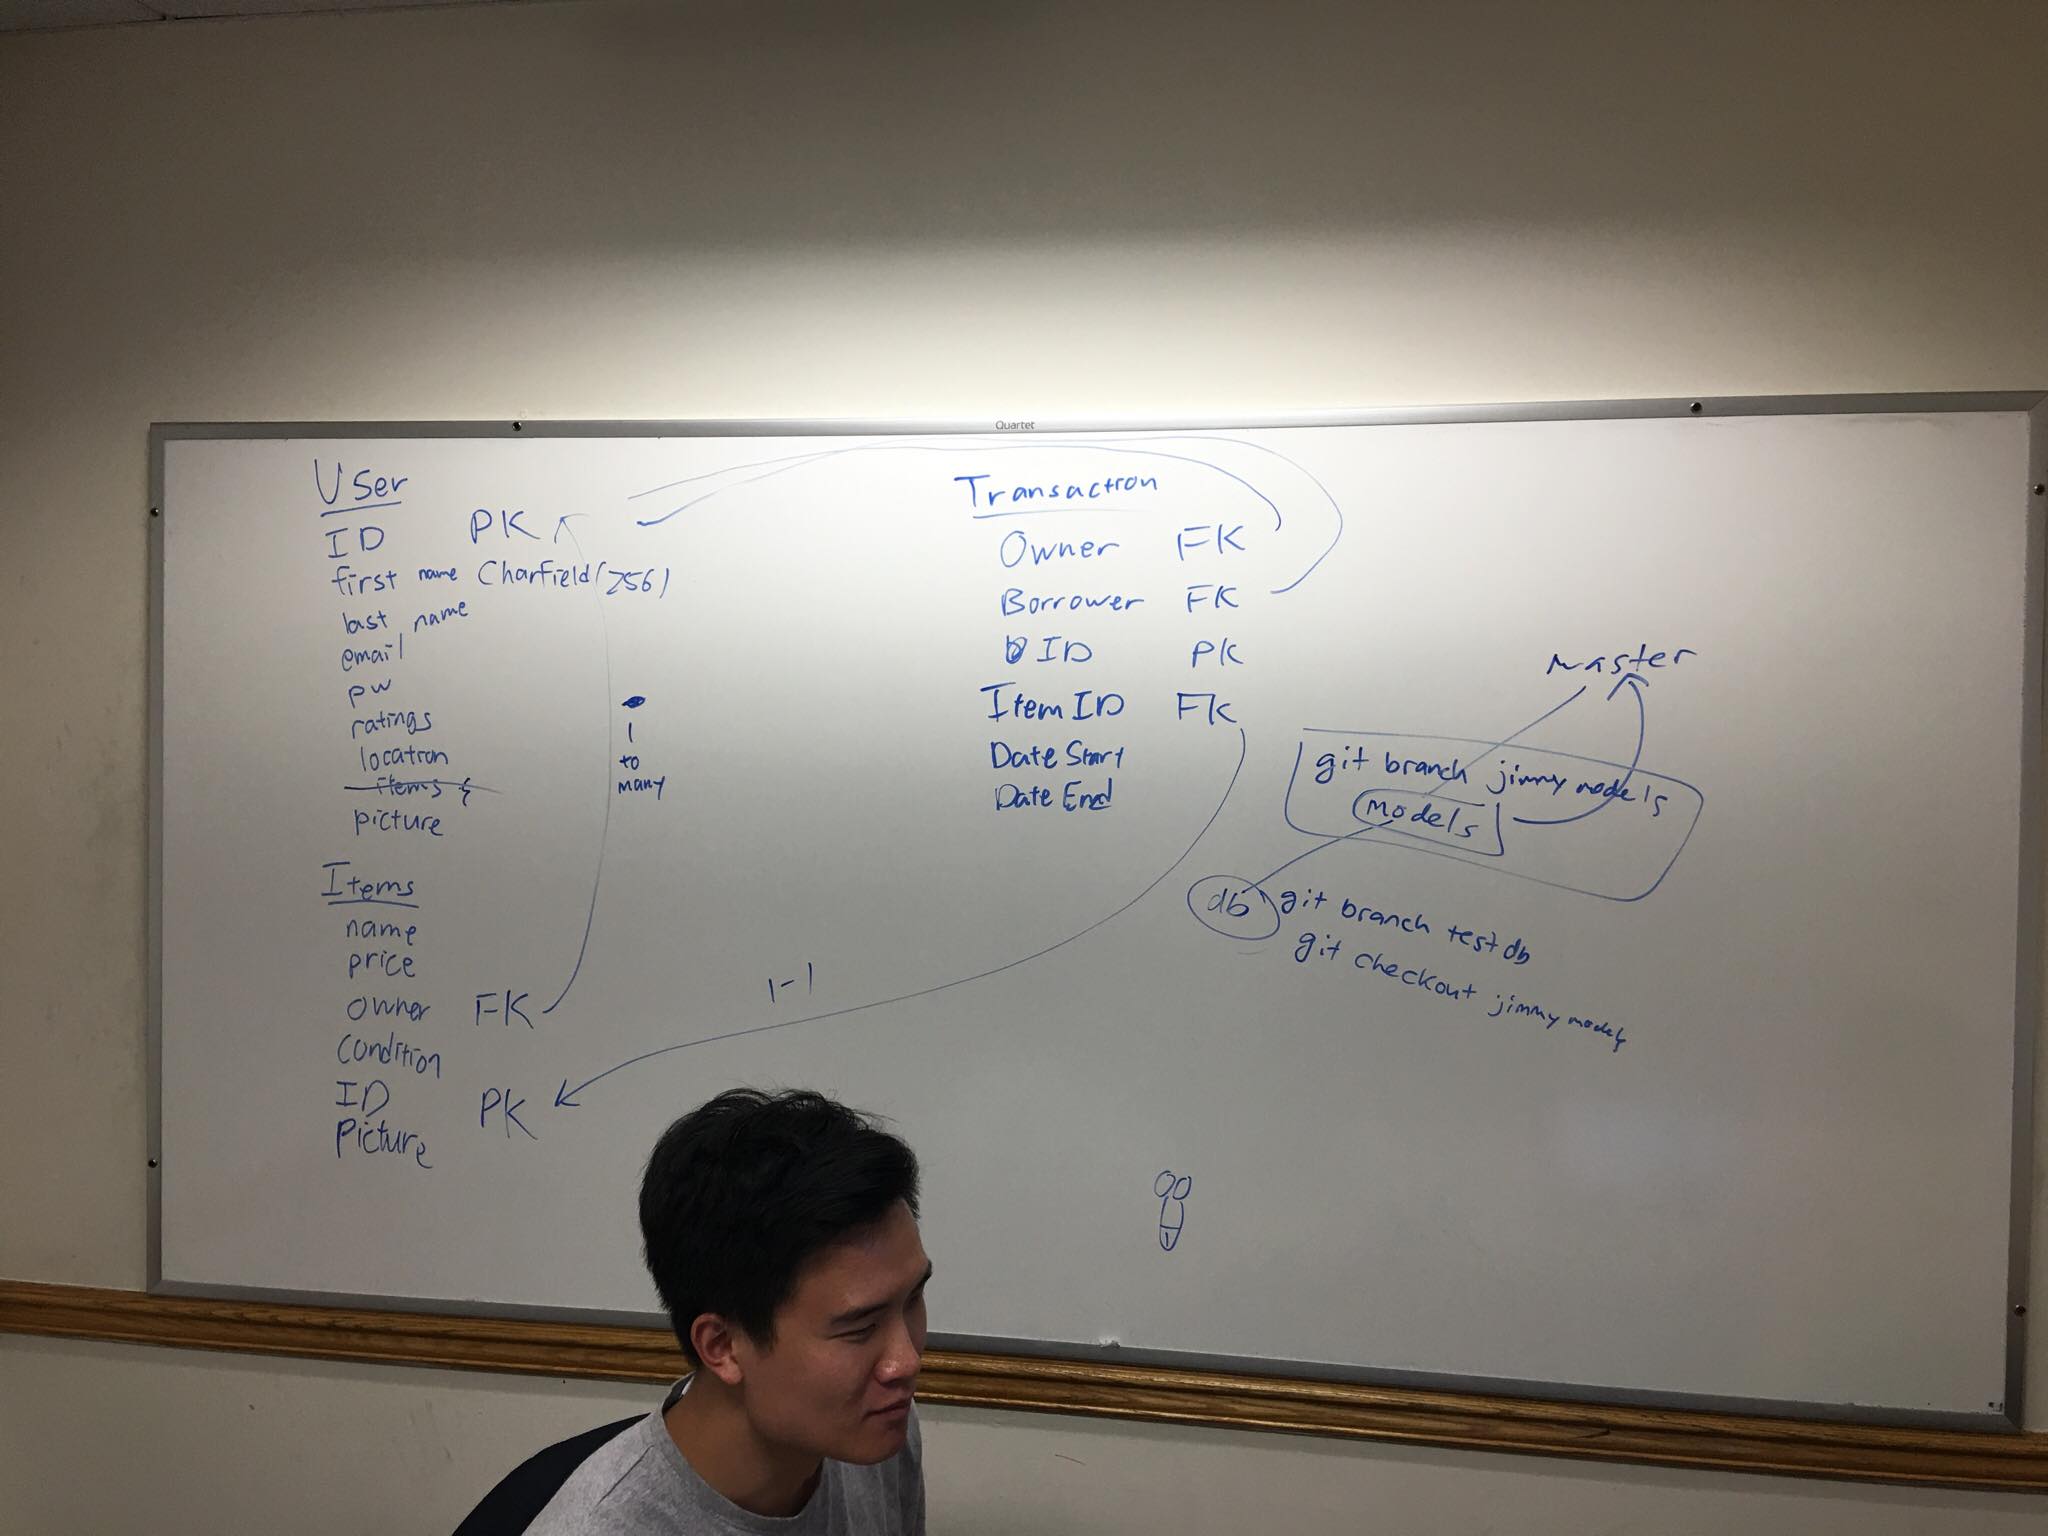 Quartet
User
ID PK
first name Charfield(256)
last name
email
pw
ratings
location
items {
picture
1
to
many
Items
name
price
owner FK
condition
ID PK
Picture
1-1
Transaction
Owner FK
Borrower FK
ID PK
Item ID FK
Date Start
Date End
master
git branch jimmy models
models
db
git branch test db
git checkout jimmy models